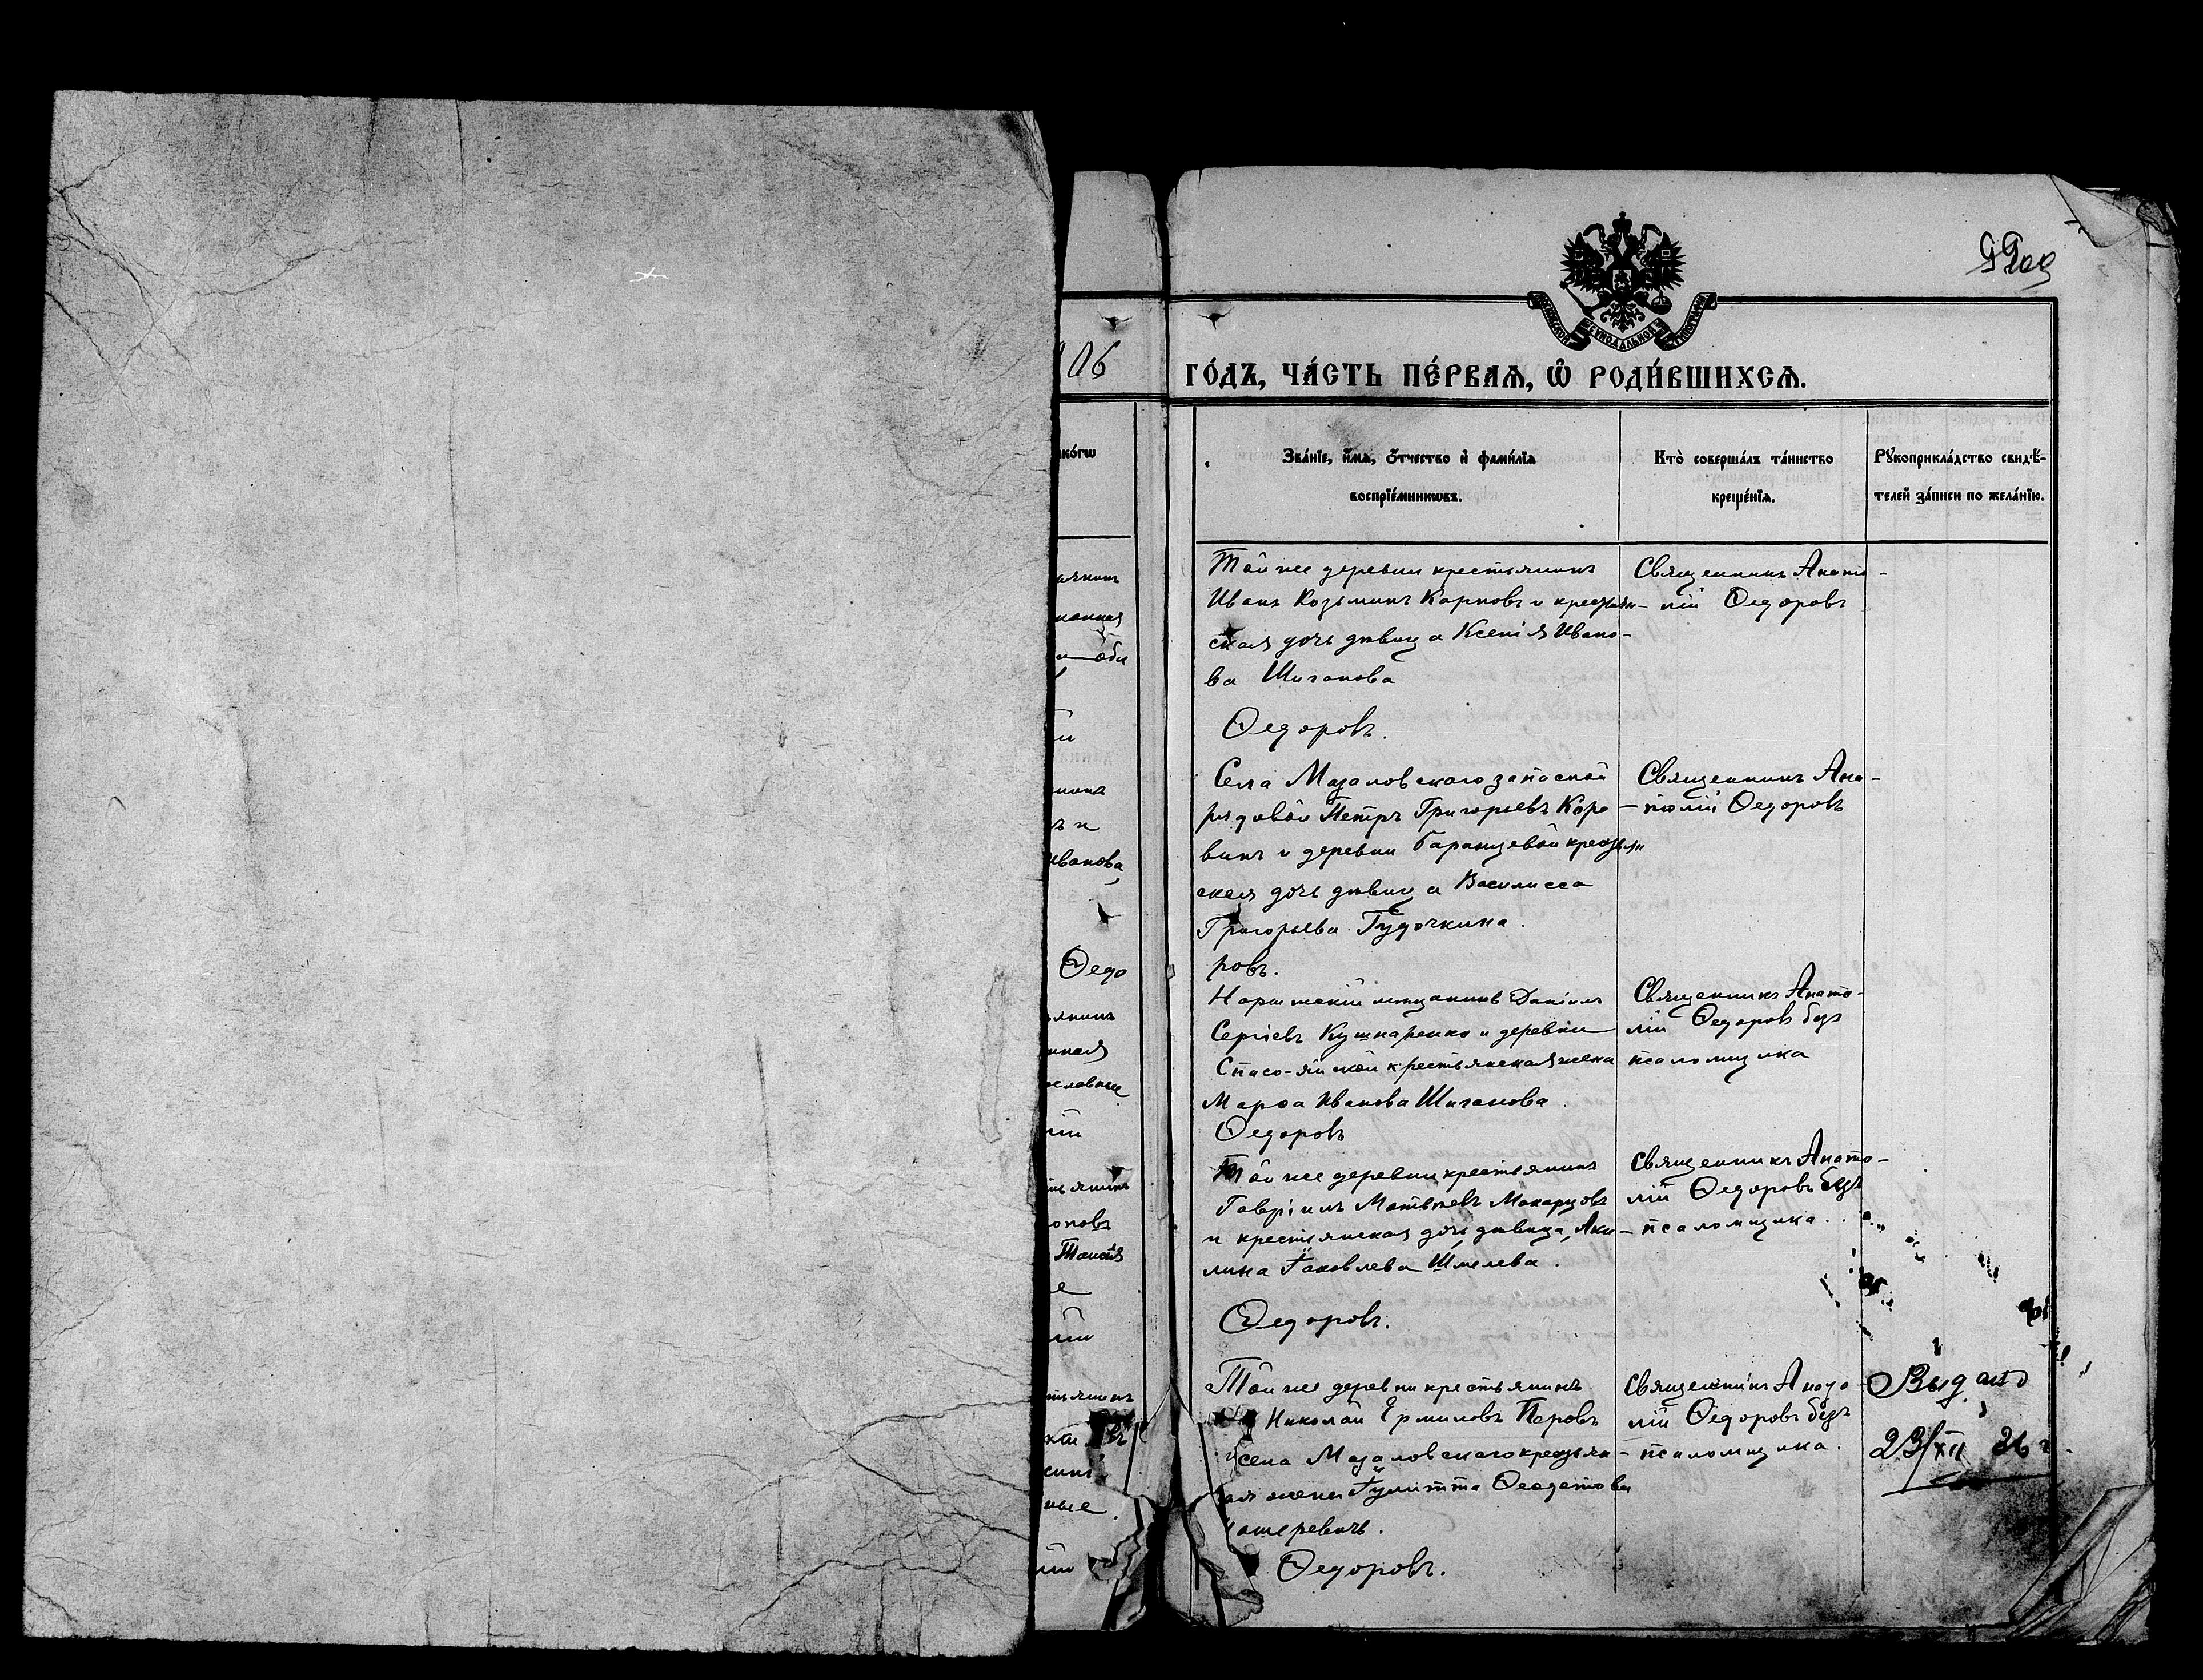 106
ГО́ДЪ, ЧА́СТЬ ПЕ́РВАЯ, Ѡ҆ РОДИ́ВШИХСЯ.
ко́гѡ
Зва́нїе, и҆́мѧ, ѻ҆́тчество и҆ фами́лїѧ
воспрїе́мникѡвъ.
Кто̀ соверша́лъ та́инство
креще́нїѧ.
Рꙋкоприкла́дство свидѣ́-
телей за́писи по жела́нїю.
Той же деревни крестьянинъ
Иванъ Козьминъ Карповъ и крестьян-
ская дочь дѣвица Ксенія Ивано-
ва Шиганова
Ѳедоровъ.
Священникъ Анато-
лій Ѳедоровъ
Села Мазаловскаго запасной
рядовой Петръ Григорьевъ Коро-
винъ и деревни Баранцевой крестьян
ская дочь дѣвица Василисса
Григорьева Гудочкина.
Священникъ Ана-
толій Ѳедоровъ
Иванова,
Ѳедо
ровъ.
мѣщанинъ Даніилъ
Сергіевъ Кушнаренко и деревни
Спасо-яйской крестьянская жена
Марѳа Иванова Шиганова.
Ѳедоровъ
Священникъ Анато-
лій Ѳедоровъ безъ
псаломщика
Той же деревни крестьянинъ
Гавріилъ Матвѣевъ Макарцовъ
и крестьянская дочь дѣвица, Аки-
лина Яковлева Шмелева.
Ѳедоровъ.
Священникъ Анато-
лій Ѳедоровъ безъ
псаломщика.
Той же деревни крестьянинъ
Николай Ермиловъ Перовъ
села Мазаловскаго крестьян-
ская жена Іулитта Ѳеодотова
Ѳедоровъ.
Священникъ Анато-
лій Ѳедоровъ безъ
псаломщика.
Выдано
23/XII 36 г.